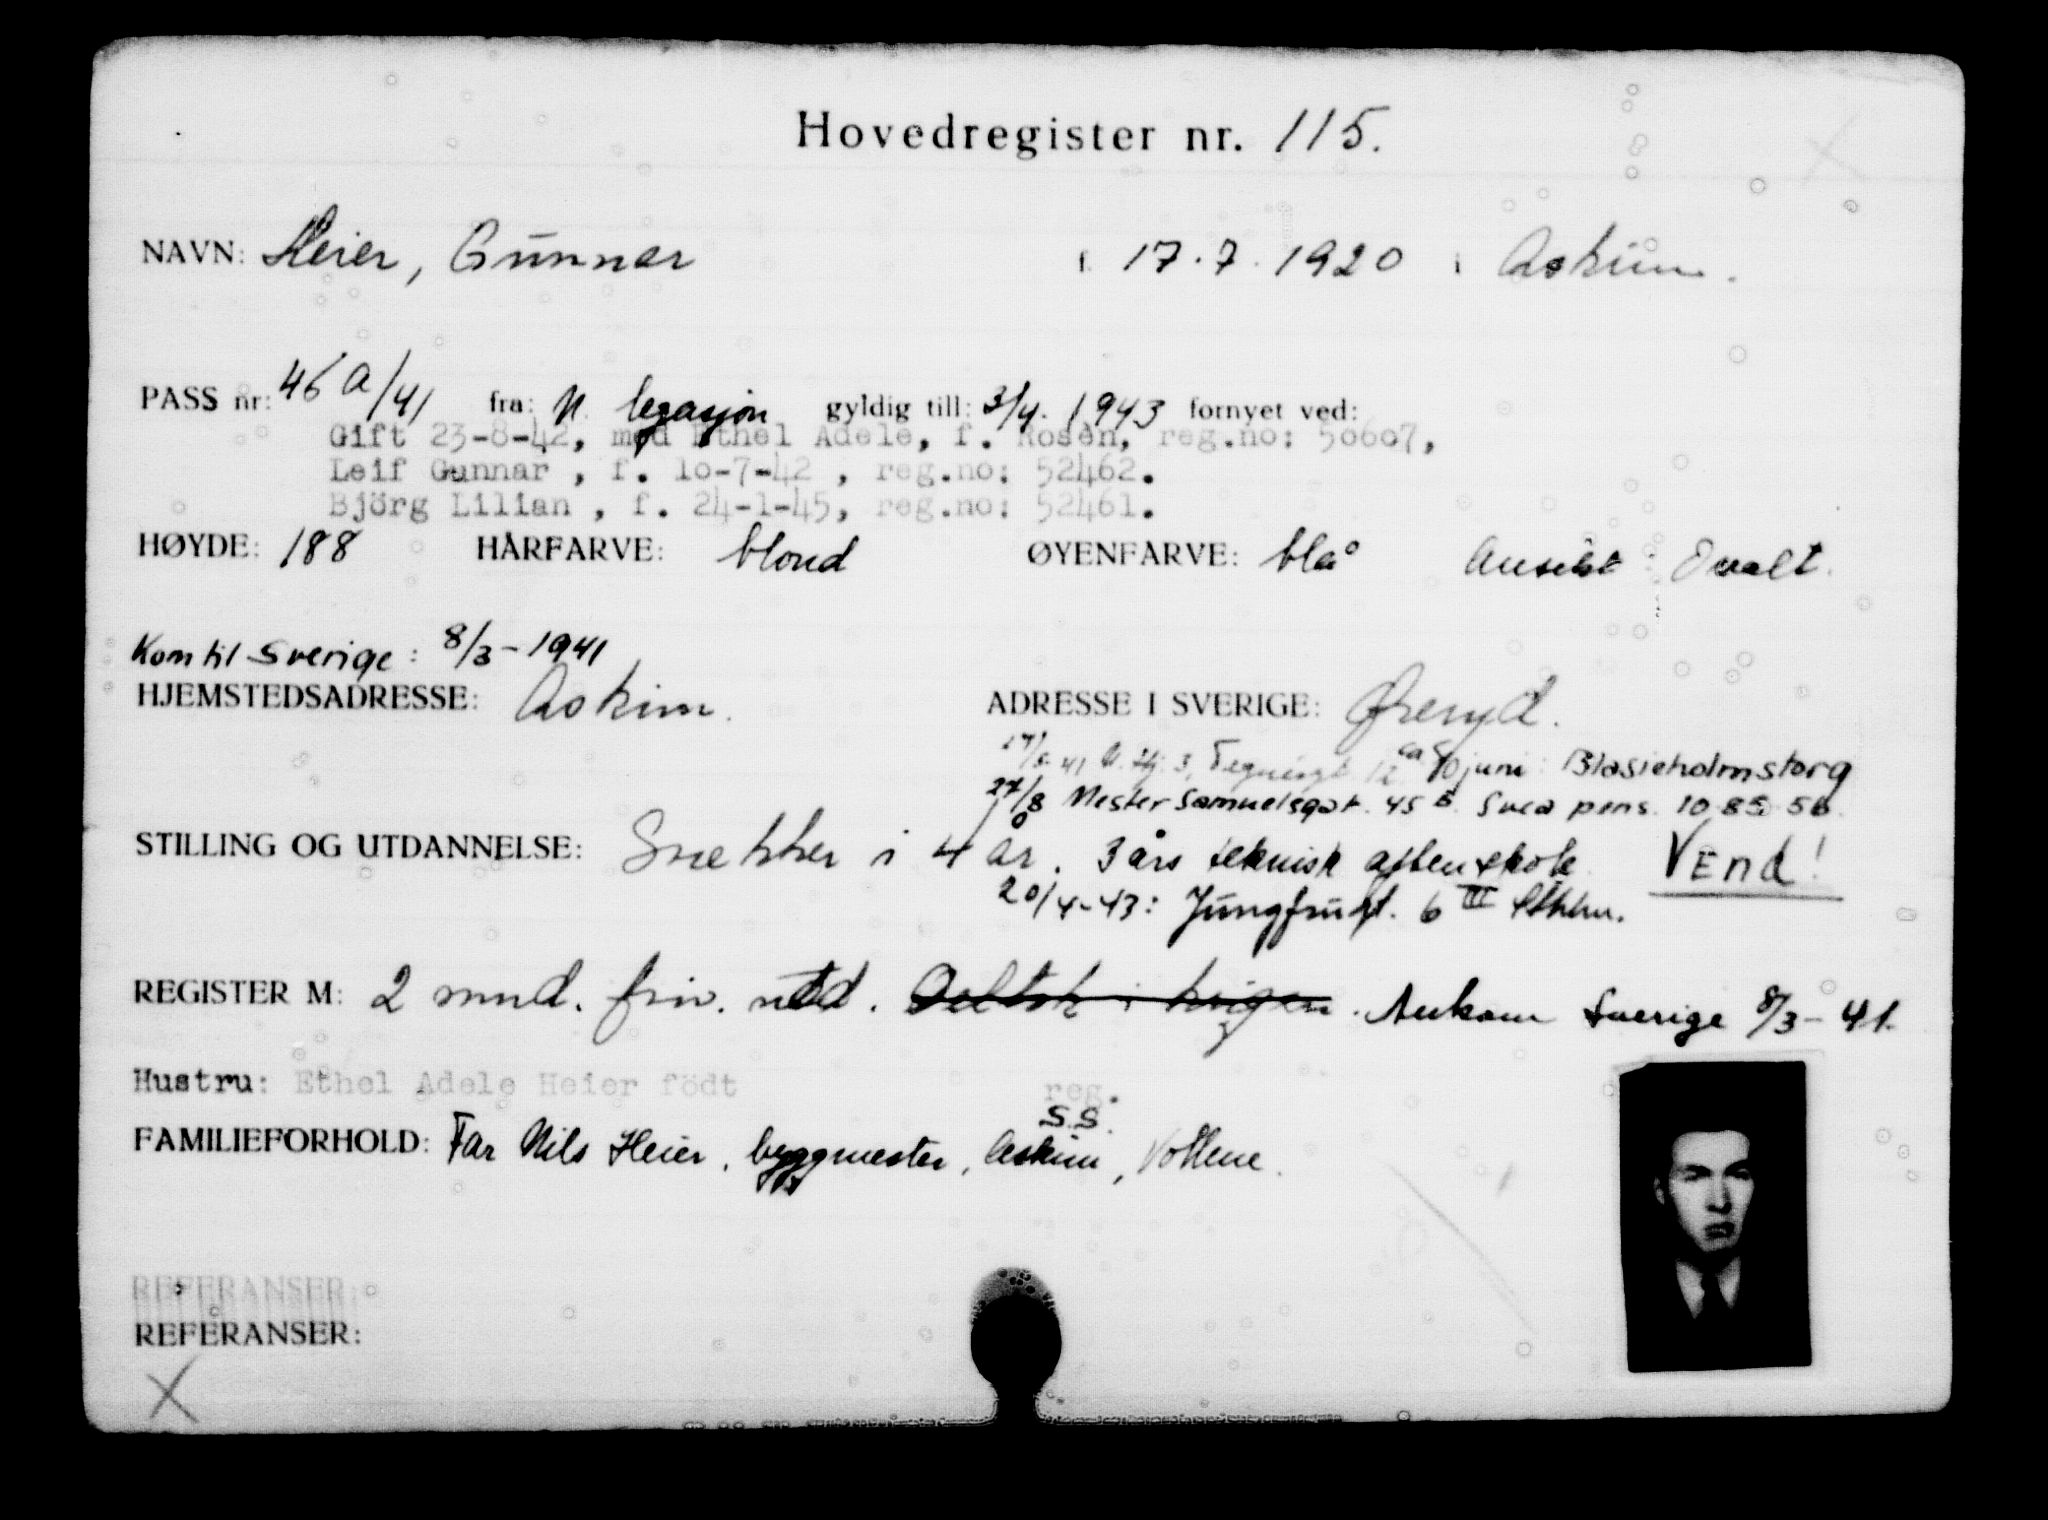 Hovedregister nr. 115.
NAVN: Heier, Gunnar f. 17.7.1920 i Askim.
PASS nr: 46 a/41 fra: N. legasjon gyldig till: 3/4. 1943 fornyet ved:
Gift 23-8-42, med Ethel Adele, f. Rosèn, reg.no: 50607,
Leif Gunnar , f. 10-7-42 , reg.no: 52462.
Björg Lilian , f. 24-1-45, reg.no: 52461.
HØYDE: 188 HÅRFARVE: blond ØYENFARVE: blå Ansikt: Ovalt.
Kom til Sverige: 8/3-1941
HJEMSTEDSADRESSE: Askim. ADRESSE I SVERIGE: Øreryd.
41 3, 12 ca 10 juni: Blasieholmstorg
27/8 Mester Samuelsgat. 45 B. Svea pens. 10 85 56.
STILLING OG UTDANNELSE: Snekker i 4 år. 3 års teknisk aftenskole VEnd!
20/4-43: Jungfrugt. 6 III Sthhm.
REGISTER M: 2 mnd. friv. utd. Deltok i krigen. Ankom Sverige 8/3-41.
Hustru: Ethel Adele Heier födt reg.
S.S.
FAMILIEFORHOLD: Far Nils Heier, byggmester, Askim, Vollene.
REFERANSER:
REFERANSER:
X